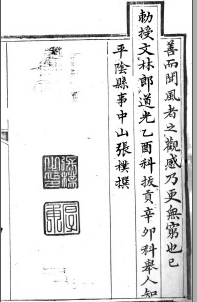 善而聞風者之觀感乃更無窮也已
勅授文林郎道光乙酉科拔貢辛卯科舉人知
平陰縣事中山張樸撰